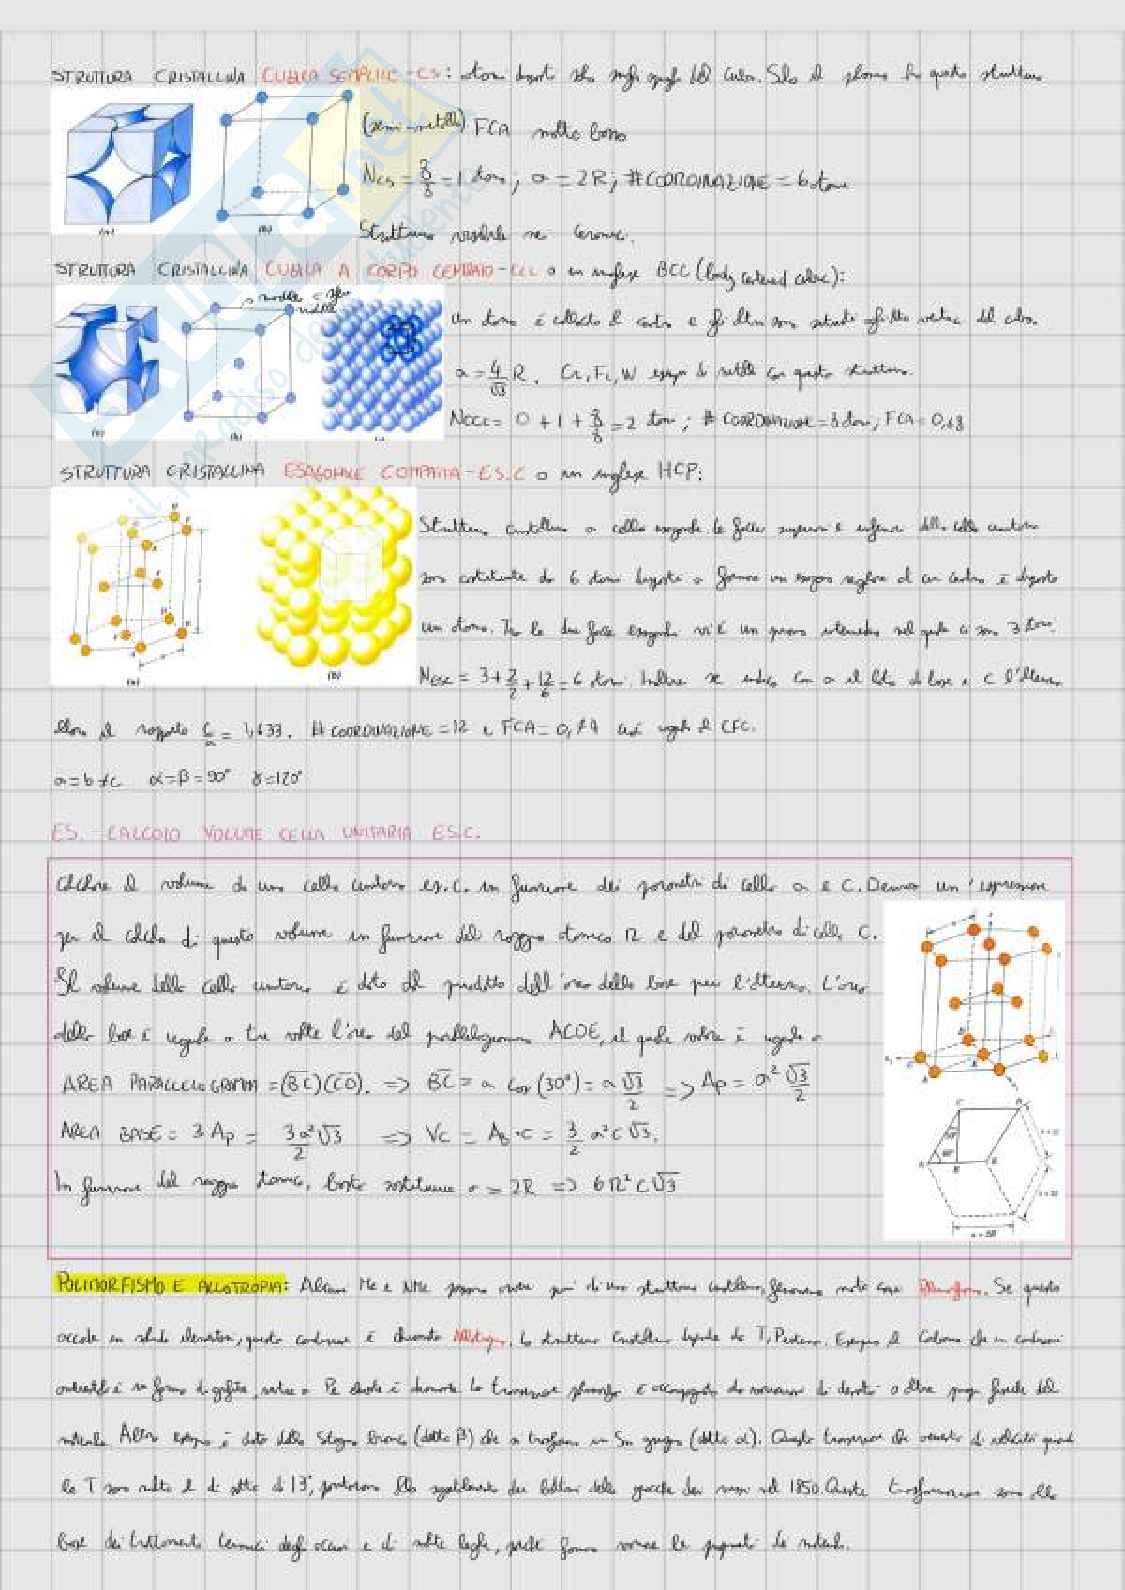 STRUTTURA CRISTALLINA CUBICA SEMPLICE - CS: atomi disposti sugli spigoli del cubo. Solo il polonio ha questa struttura
(semi-metallo) FCA molto basso
N_CS = 8/8 = 1 atomo; a = 2R; # COORDINAZIONE = 6 atomi
Struttura visibile nei ceramici.
STRUTTURA CRISTALLINA CUBICA A CORPO CENTRATO - CCC o in inglese BCC (body centered cubic):
un atomo è collocato al centro e gli altri sono situati vertici del cubo.
a = 4/√3 R. Cr, Fe, W esempi di metalli con questa struttura.
N_CCC = 0 + 1 + 8/8 = 2 atomi; # COORDINAZIONE = 8 atomi; FCA = 0,68
STRUTTURA CRISTALLINA ESAGONALE COMPATTA - ES.C o in inglese HCP:
Struttura cristallina a cella esagonale. Le facce superiore e inferiore della cella unitaria
sono costituite da 6 atomi disposti a formare un esagono regolare al cui centro è disposto
un atomo. Tra le due facce esagonali vi è un piano intermedio nel quale ci sono 3 atomi.
N_ESC = 3 + 2/2 + 12/6 = 6 atomi. Inoltre se indico con a il lato di base e c l'altezza
allora il rapporto c/a = 1,633. # COORDINAZIONE = 12 e FCA = 0,74 uguale al CFC.
a = b ≠ c α = β = 90° γ = 120°
ES. - CALCOLO VOLUME CELLA UNITARIA ES.C.
Calcolare il volume di una cella unitaria es.c. in funzione dei parametri di cella a e c. Derivare un'espressione
per il calcolo di questo volume in funzione del raggio atomico R e del parametro di cella c.
Il volume della cella unitaria è dato dal prodotto dell'area della base per l'altezza. L'area
della base è uguale a tre volte l'area del parallelogramma ACDE, il quale valore è uguale a
AREA PARALLELOGRAMMA = (BC)(CD). => BC = a cos(30°) = a √3/2 => Ap = a² √3/2
AREA BASE = 3 Ap = 3a²√3/2 => Vc = Ab · c = 3/2 a²c√3.
In funzione del raggio atomico, basta sostituire a = 2R => 6R²c√3
POLIMORFISMO E ALLOTROPIA: Alcuni Me e NMe possono avere più di una struttura cristallina, fenomeno noto come Polimorfismo. Se questo
accade in solidi elementari, questa condizione è chiamata Allotropia. La struttura cristallina dipende da T, Pesterna. Esempio il Carbonio che in condizioni
ambientali è in forma di grafite, mentre a Pe elevate è diamante. La trasformazione è accompagnata da variazioni di densità o altre prop. fisiche del
materiale. Altro esempio è dato dallo Stagno bianco (detto β) che si trasforma in Sn grigio (detto α). Questa trasformazione
la T sotto i 13°, 1850. Queste trasformazioni sono alla
base dei trattamenti termici degli acciai e di molte leghe, poiché fanno variare le proprietà dei materiali.